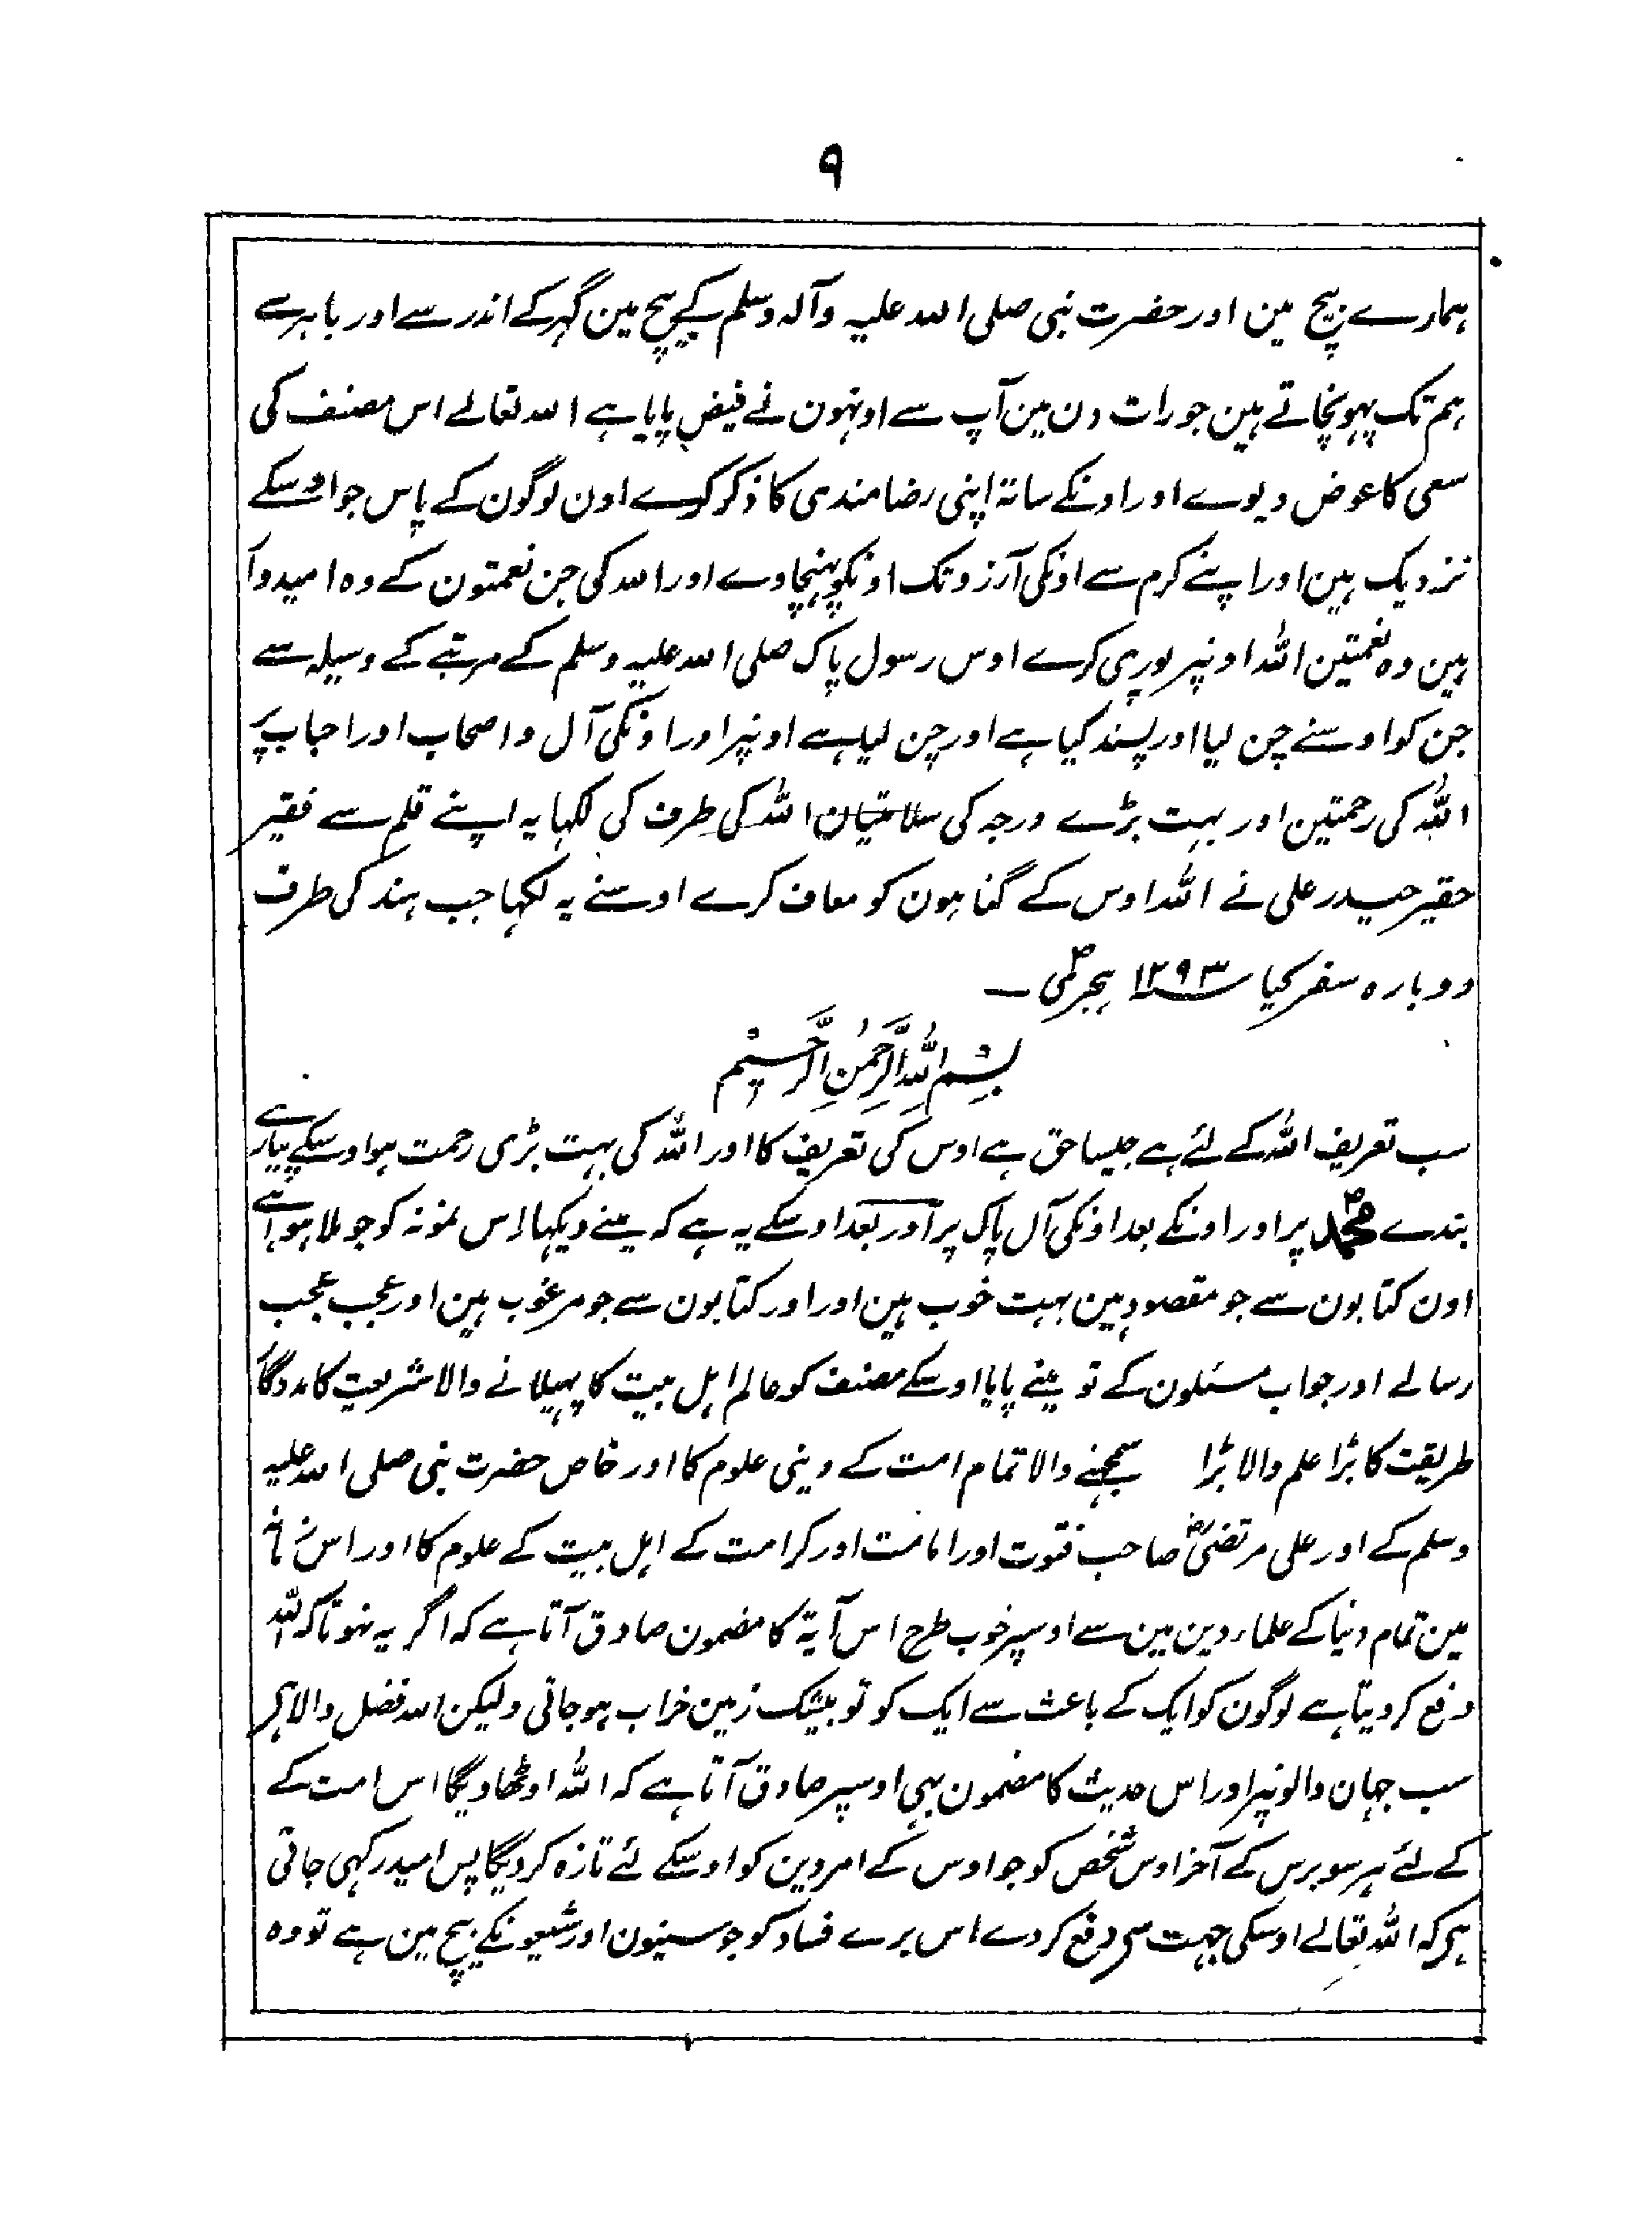 ۹
ہمارے بیچ مین اور حضرت نبی صلی اللہ علیہ وآلہ وسلم کے بیچ مین گہر کے اندر سے اور باہر سے
ہم تک پہونچاتے ہین جو رات دن مین آپ سے اونہون نے فیض پایا ہے اللہ تعالے اس مصنف کی
سعی کا عوض دیوے اور اونکے ساتہ اپنی رضا مندی کا ذکر کرے اون لوگون کے پاس جو اوسکے
نزدیک ہین اور اپنے کرم سے اونکی آرزو تک اونکو پہنچاوے اور اللہ کی جن نعمتون کے وہ امیدوار
ہین وہ نعمتین اللہ اونپر پوری کرے اوس رسول پاک صلی اللہ علیہ وسلم کے مرتبے کے وسیلہ سے
جن کو اوسنے چن لیا اور پسند کیا ہے اور چن لیا ہے اونپر اور اونکی آل و اصحاب اور احباب پر
اللہ کی رحمتین اور بہت بڑے درجہ کی سلامتیان اللہ کی طرف کی لکہا یہ اپنے قلم سے فقیر
حقیر حیدر علی نے اللہ اوس کے گناہون کو معاف کرے اوسنے یہ لکہا جب ہند کی طرف
دوبارہ سفر کیا ۱۲۹۳ ہجری ؐ ۔
بِسْمِ اللّٰہِ الرَّحْمٰنِ الرَّحِیْمِ
سب تعریف اللہ کے لئے ہے جیسا حق ہے اوس کی تعریف کا اور اللہ کی بہت بڑی رحمت ہو اوسکے پیارے
بندے محمدؐ پر اور اونکے بعد اونکی آل پاک پر اور بعد اوسکے یہ ہے کہ مینے دیکہا اِس نمونہ کو جو ملا ہوا ہے
اون کتابون سے جو مقصود ہین بہت خوب ہین اور اور کتابون سے جو مرغوب ہین اور عجب عجب
رسالے اور جواب مسئلون کے تو مینے پایا اوسکے مصنف کو عالم اہل بیت کا پہیلانے والا شریعت کا مددگار
طریقت کا بڑا علم والا بڑا سمجہنے والا تمام امت کے دینی علوم کا اور خاص حضرت نبی صلی اللہ علیہ
وسلم کے اور علی مرتضیؓ صاحب فتوت اور امامت اور کرامت کے اہل بیت کے علوم کا اور اس زمانہ
مین تمام دنیا کے علماء دین مین سے اوسپر خوب طرح اس آیۃ کا مضمون صادق آتا ہے کہ اگر یہ نہوتا کہ اللہ
دفع کر دیتا ہے لوگون کو ایک کے باعث سے ایک کو تو بیشک زمین خراب ہو جاتی ولیکن اللہ فضل والا ہی
سب جہان والونپر اور اس حدیث کا مضمون بہی اوسپر صادق آتا ہے کہ اللہ اوٹھاویگا اس امت کے
کے لئے ہر سو برس کے آخر اوس شخص کو جو اوس کے امر دین کو اوسکے لئے تازہ کر دیگا پس امید رکہی جاتی
ہی کہ اللہ تعالے اوسکی جہت سی دفع کر دے اس برے فساد کو جو سنیون اور شیعونکے بیچ مین ہے تو وہ